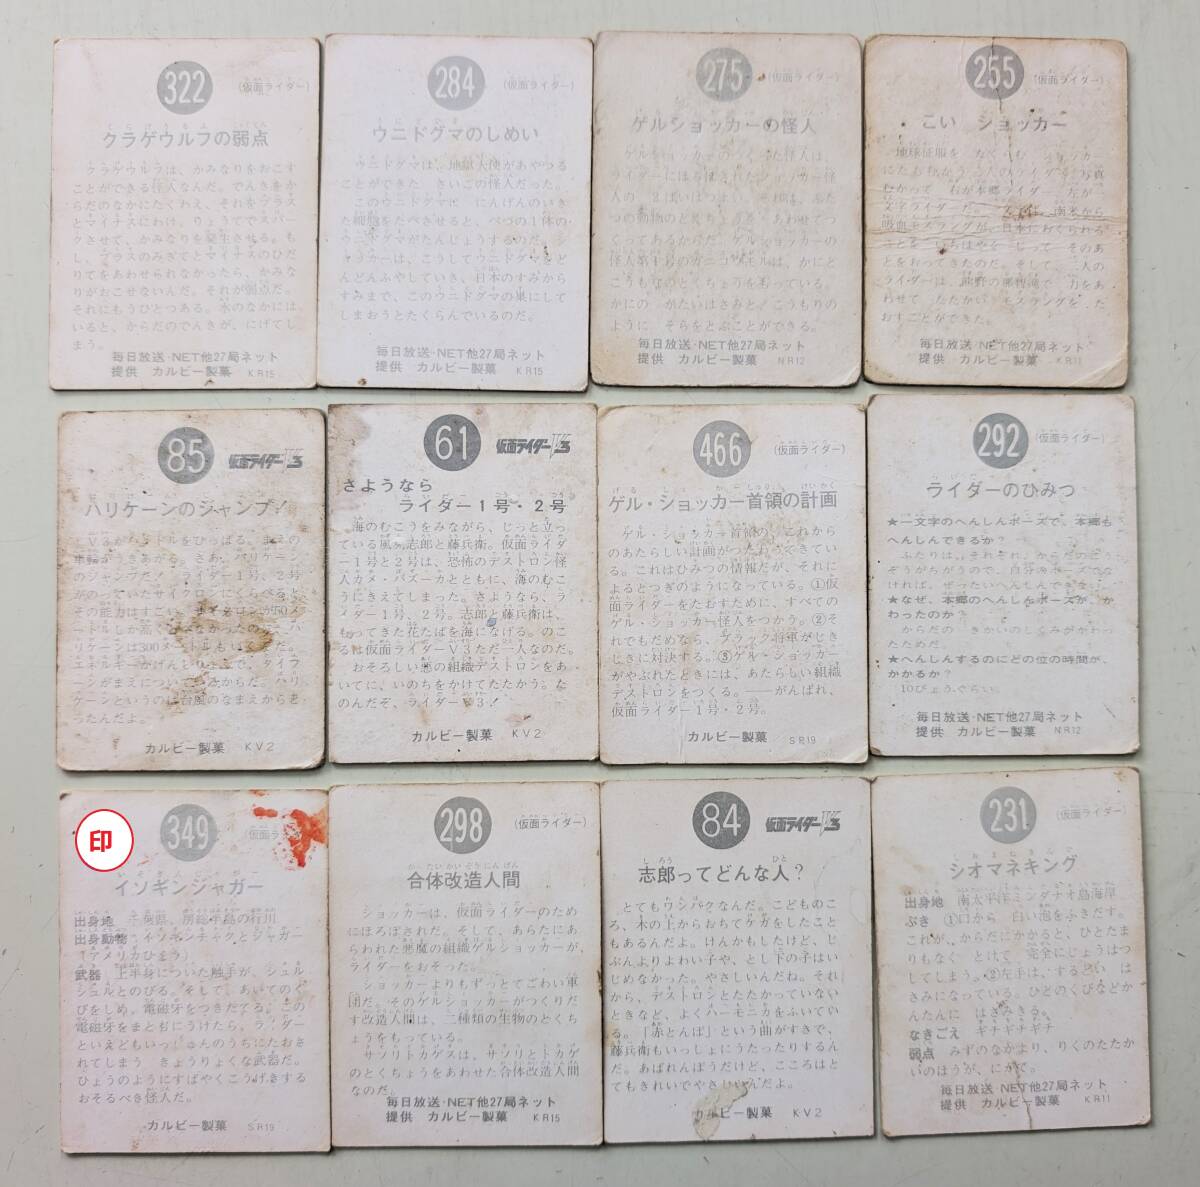 322
(仮面ライダー)
クラゲウルフの弱点
クラゲウルフは、かみなりをおこす
ことができる怪人なんだ。でんきをか
らだのなかにたくわえ、それをプラス
とマイナスにわけ、りょうてでスパー
クさせて、かみなりを発生させる。も
し、プラスのみぎてとマイナスのひだ
りてをあわせられなかったら、かみな
りがおこせないんだ。それが弱点だ。
それにもうひとつある。水のなかには
いると、からだのでんきが、にげてし
まう。
毎日放送・NET他27局ネット
提供 カルビー製菓 KR15
284
(仮面ライダー)
ウニドグマのしめい
ウニドグマは、地獄大使があやつる
ことができた さいごの怪人だった。
このウニドグマに にんげんのいき
た細胞をたべさせると、べつの1体の
ウニドグマがたんじょうするのだ。シ
ョッカーは、こうしてウニドグマをど
んどんふやしていき、日本のすみから
すみまで、このウニドグマの巣にして
しまおうとたくらんでいるのだ。
毎日放送・NET他27局ネット
提供 カルビー製菓 KR15
275
(仮面ライダー)
ゲルショッカーの怪人
ゲルショッカーのつくった怪人は、
ライダーにほろぼされたショッカー怪
人の 2ばいはつよい。それは、ふた
つの動物のとくちょうを あわせてつ
くってあるからだ。ゲルショッカーの
怪人第1号のガニコウモルは、かにと
こうもりのとくちょうをもっている。
かにの かたいはさみと、こうもりの
ように そらをとぶことができる。
毎日放送・NET他27局ネット
提供 カルビー製菓 NR12
255
(仮面ライダー)
こい ショッカー
地球征服を たくらむ ショッカー
にたちむかう 2人のライダー。写真
むかって 右が本郷ライダー 左が一
文字ライダーだ
南米から
吸血モスキラスが、日本におくられる
ことを いちはやく しって そのあ
とをおってきたのだ。そして 2人の
ライダーは、熊野の那智滝で 力をあ
わせて たたかい
た
おすことができた。
毎日放送・NET他27局ネット
提供 カルビー製菓 KR11
85
仮面ライダーV3
ハリケーンのジャンプ!
V3がハンドルをひっぱる。まえの
車輪がうきあがる。さあ、ハリケーン
のジャンプだ! ライダー1号、2号
がのっていたサイクロンにくらべると
その能力はすごい。サイクロンが50メ
ートルしか高くとべなかったのに、ハ
リケーンは300メートルもいくんだ。
エネルギーがげんしりょくで、タイフ
ーンがまえについているからだ。ハリ
ケーンというのは台風のなまえからき
ったんだよ。
カルビー製菓 KV2
61
仮面ライダーV3
さようなら
ライダー1号・2号
海のむこうをみながら、じっと立っ
ている風見志郎と藤兵衛。仮面ライダ
ー1号と2号は、恐怖のデストロン怪
人カメ・バズーカとともに、海のむこ
うにきえてしまった。さようなら、ラ
イダー1号、2号。志郎と藤兵衛は、
もってきた花たばを海になげる。のこ
るは仮面ライダーV3ただ一人なのだ。
おそろしい悪の組織デストロンをあ
いてに、いのちをかけてたたかう。た
のんだぞ、ライダーV3!
カルビー製菓 KV2
466
(仮面ライダー)
ゲル・ショッカー首領の計画
ゲル・ショッカー首領の、これから
のあたらしい計画がつたわってきてい
る。これはひみつの情報だが、それに
よるとつぎのようになっている。①仮
面ライダーをたおすために、すべての
ゲル・ショッカー怪人をつかう。②そ
れでもだめなら、ブラック将軍がじき
じきに対決する。③ゲル・ショッカー
がやぶれたときには、あたらしい組織
デストロンをつくる。――がんばれ、
仮面ライダー1号・2号。
カルビー製菓 SR19
292
(仮面ライダー)
ライダーのひみつ
★一文字のへんしんポーズで、本郷も
へんしんできるか?
ふたりは、それぞれ、からだのこう
ぞうがちがうので、自分のポーズでな
ければ、ぜったいへんしんできない。
★なぜ、本郷のへんしんポーズが、か
わったのか?
からだの きかいのしくみがかわっ
たためだ。
★へんしんするのにどの位の時間が、
かかるか?
10びょうぐらい。
毎日放送・NET他27局ネット
提供 カルビー製菓 NR12
印
349
(仮面ライダー)
イソギンジャガー
出身地 千葉県、房総半島の行川
出身動物・イソギンチャクとジャガー
(アメリカひょう)
武器 上半身についた触手が、シュル
シュルとのびる。そして、あいてのく
びをしめ、電磁牙をつきたてる。この
電磁牙をまともにうけたら、ライダー
といえどもいっしゅんのうちにたおさ
れてしまう きょうりょくな武器だ。
ひょうのようにすばやくこうげきする
おそるべき怪人だ。
カルビー製菓 SR19
298
(仮面ライダー)
合体改造人間
ショッカーは、仮面ライダーのため
にほろぼされた。そして、あらたにあ
らわれた悪魔の組織ゲルショッカーが、
ライダーをおそった。
ショッカーよりもずっとてごわい軍
団だ。そのゲルショッカーがつくりだ
す改造人間は、二種類の生物のとくち
ょうをもっている。
サソリトカゲスは、サソリとトカゲ
のとくちょうをあわせた合体改造人間
なのだ。
毎日放送・NET他27局ネット
提供 カルビー製菓 KR15
84
仮面ライダーV3
志郎ってどんな人?
とてもワンパクなんだ。こどものこ
ろ、木の上からおちてケガをしたこと
もあるんだよ。けんかもしたけど、じ
ぶんよりよわい子や、とし下の子はい
じめなかった。やさしいんだね。それ
から、デストロンとたたかっていない
ときなど、よくハーモニカをふいてい
る。「赤とんぼ」という曲がすきで、
藤兵衛もいっしょにうたったりするん
だ。あばれんぼうだけど、こころはと
てもきれいでやさしいんだよ。
カルビー製菓 KV2
231
(仮面ライダー)
シオマネキング
出身地 南太平洋ミンダナオ島海岸
ぶき ①口から 白い泡をふきだす。
これが、からだにかかると、ひとたま
りもなく とけて 完全にじょうはつ
してしまう。②左手は、するどい は
さみになっている。ひとのくびなどか
んたんに はさみきる。
なきごえ ギチギチギチ
弱点 みずのなかより、りくのたたか
いのほうが、にがて。
毎日放送・NET他27局ネット
提供 カルビー製菓 KR11